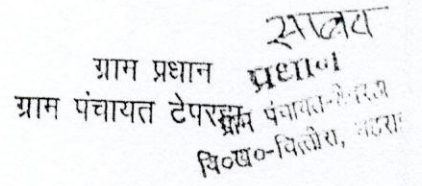 सचिव
ग्राम प्रधान प्रधान
ग्राम पंचायत टेपरहा ग्राम पंचायत-टेपरहा
वि०ख०-चित्तौरा,